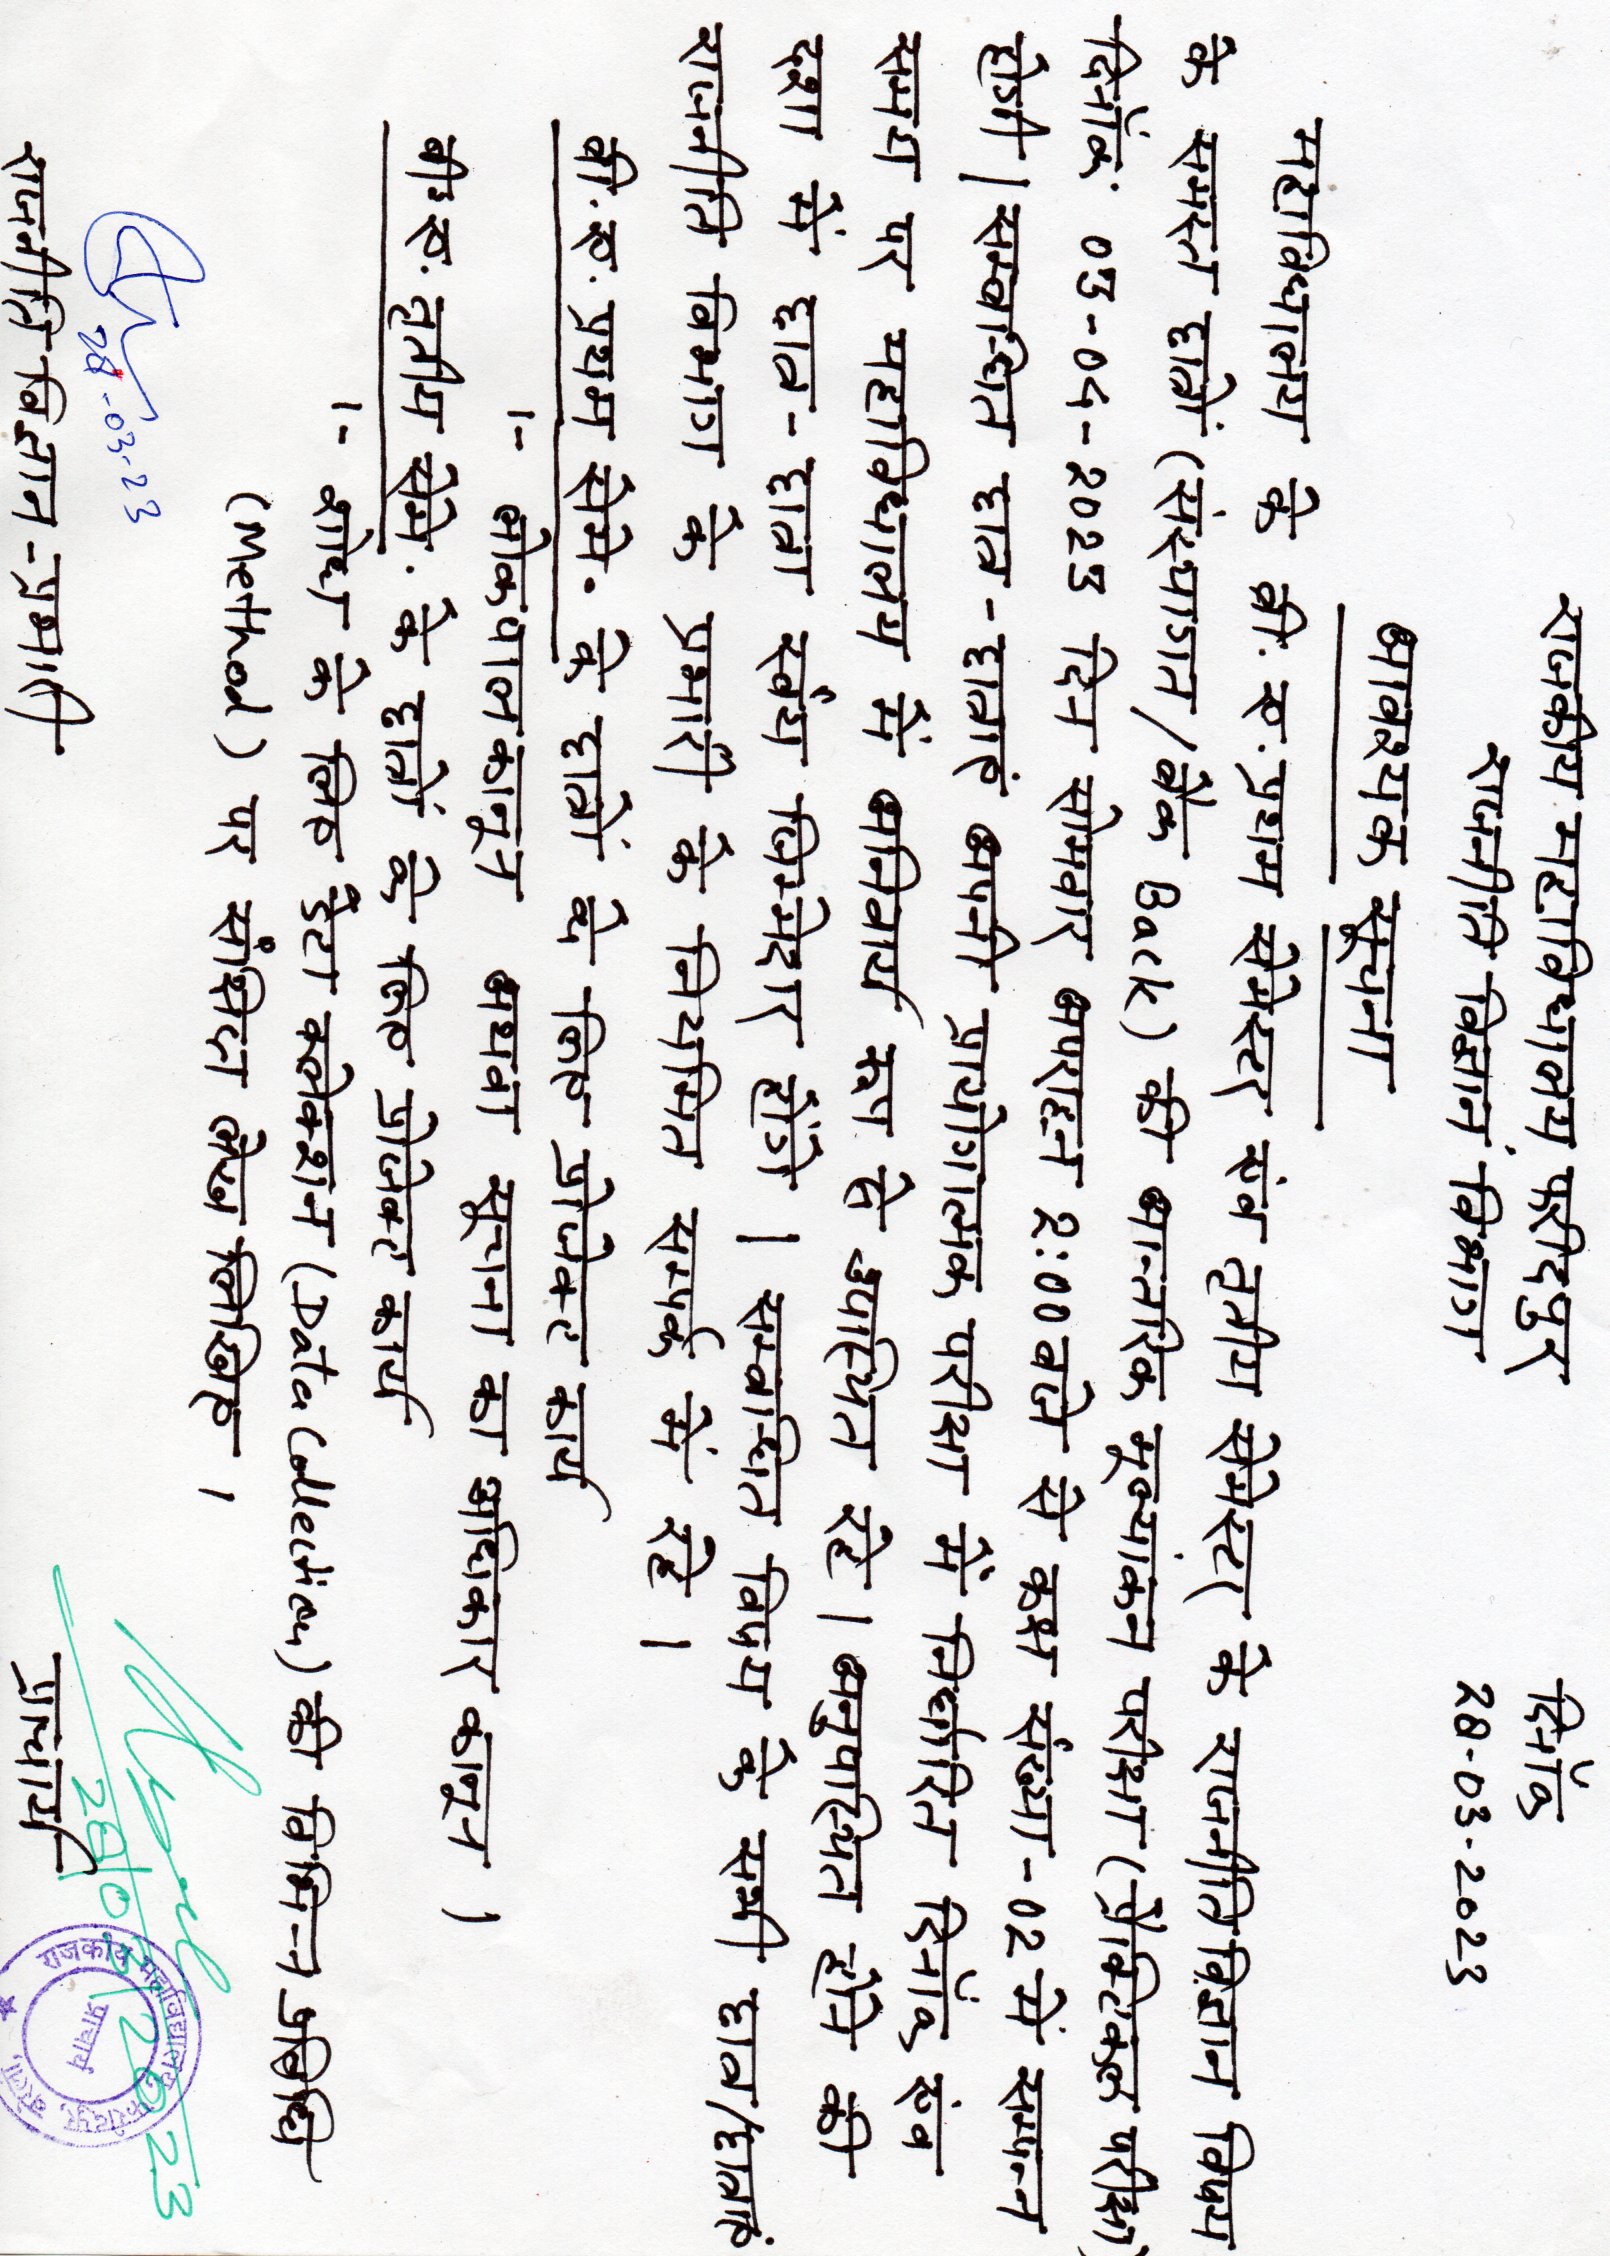 राजकीय महाविद्यालय फरीदपुर
दिनाँक
राजनीति विज्ञान विभाग
28-03-2023
आवश्यक सूचना
महाविद्यालय के बी.ए. प्रथम सेमेस्टर एंव तृतीय सेमेस्टर के राजनीति विज्ञान विषय
के समस्त छात्रों (संस्थागत/बैक Back) की आन्तरिक मूल्यांकन परीक्षा (प्रैक्टिकल परीक्षा)
दिनाँक 03-04-2023 दिन सोमवार अपराहन 2:00 बजे से कक्ष संख्या-02 में सम्पन्न
होगी | सम्बन्धित छात्र-छात्राएं अपनी प्रायोगात्मक परीक्षा में निर्धारित दिनाँक एंव
समय पर महाविद्यालय में अनिवार्य रूप से उपास्थित रहे | अनुपास्थित होने की
दशा में छात्र-छात्रा स्वंय जिम्मेदार होंगे | सम्बन्धित विषय के सभी छात्र/छात्राएं
राजनीति विभाग के प्रभारी के नियमित सम्पर्क में रहे |
बी.ए. प्रथम सेमे. के छात्रों के लिए प्रोजेक्ट कार्य
1- लोकपाल कानून अथवा सूचना का अधिकार कानून )
बी.ए. तृतीय सेमे. के छात्रों के लिए प्रोजेक्ट कार्य
1- शोध के लिए डैटा कलेक्शन (Data Collection) की विभिन्न प्रविधि
(Method) पर संक्षिप्त लेख लिखिए ।
28-03-23
29/03/2023
राजनीति विज्ञान-प्रभारी
प्राचार्य
राजकीय महाविद्यालय फरीदपुर, बरेली
प्राचार्य